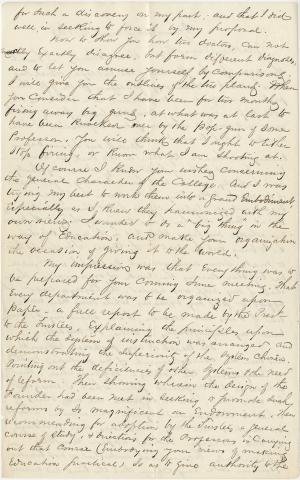 for such a discovery on my part; and that I did
well in seeking to force it by my proposal.
how two doctors, can not
exactly disagree, but form different diagnoses,
and to let you amuse yourself by comparisons,
I will give you the outlines of the two plans. When
you consider that I have been for two months
firing away big guns, at what was at last to
have been knocked over by the Pop-gun of Some
Professor, you will think that I ought to either
Stop firing, or know what I am shooting at.
Of course I knew your wishes concerning
the general Character of the College. And I was
trying my best to work them into a grand Embodiment
Especially as I knew they harmonized with my
own views. I wanted to do a big thing in the
way of Education, and make your organization
the occasion of giving it to the world.
My impression was that Everything was to
be prepared for your coming June meeting. That
Every department was to be organized upon
paper, a full report to be made by the Prest
to the Trustees, Explaining the principles upon
which the system of instruction was arranged and
demonstrating the Superiority of the System chosen.
Pointing out the deficiencies of other Systems & the need
of reform. Then showing wherein the design of the
Founder had been met in seeking to promote such
reforms by so magnificent an Endowment. Then
recommending for adoption by the Trustees a general
course of study, & directions for the Professors in Carrying
out that course (Embodying your views of making
Education practical) so as to give authority to the